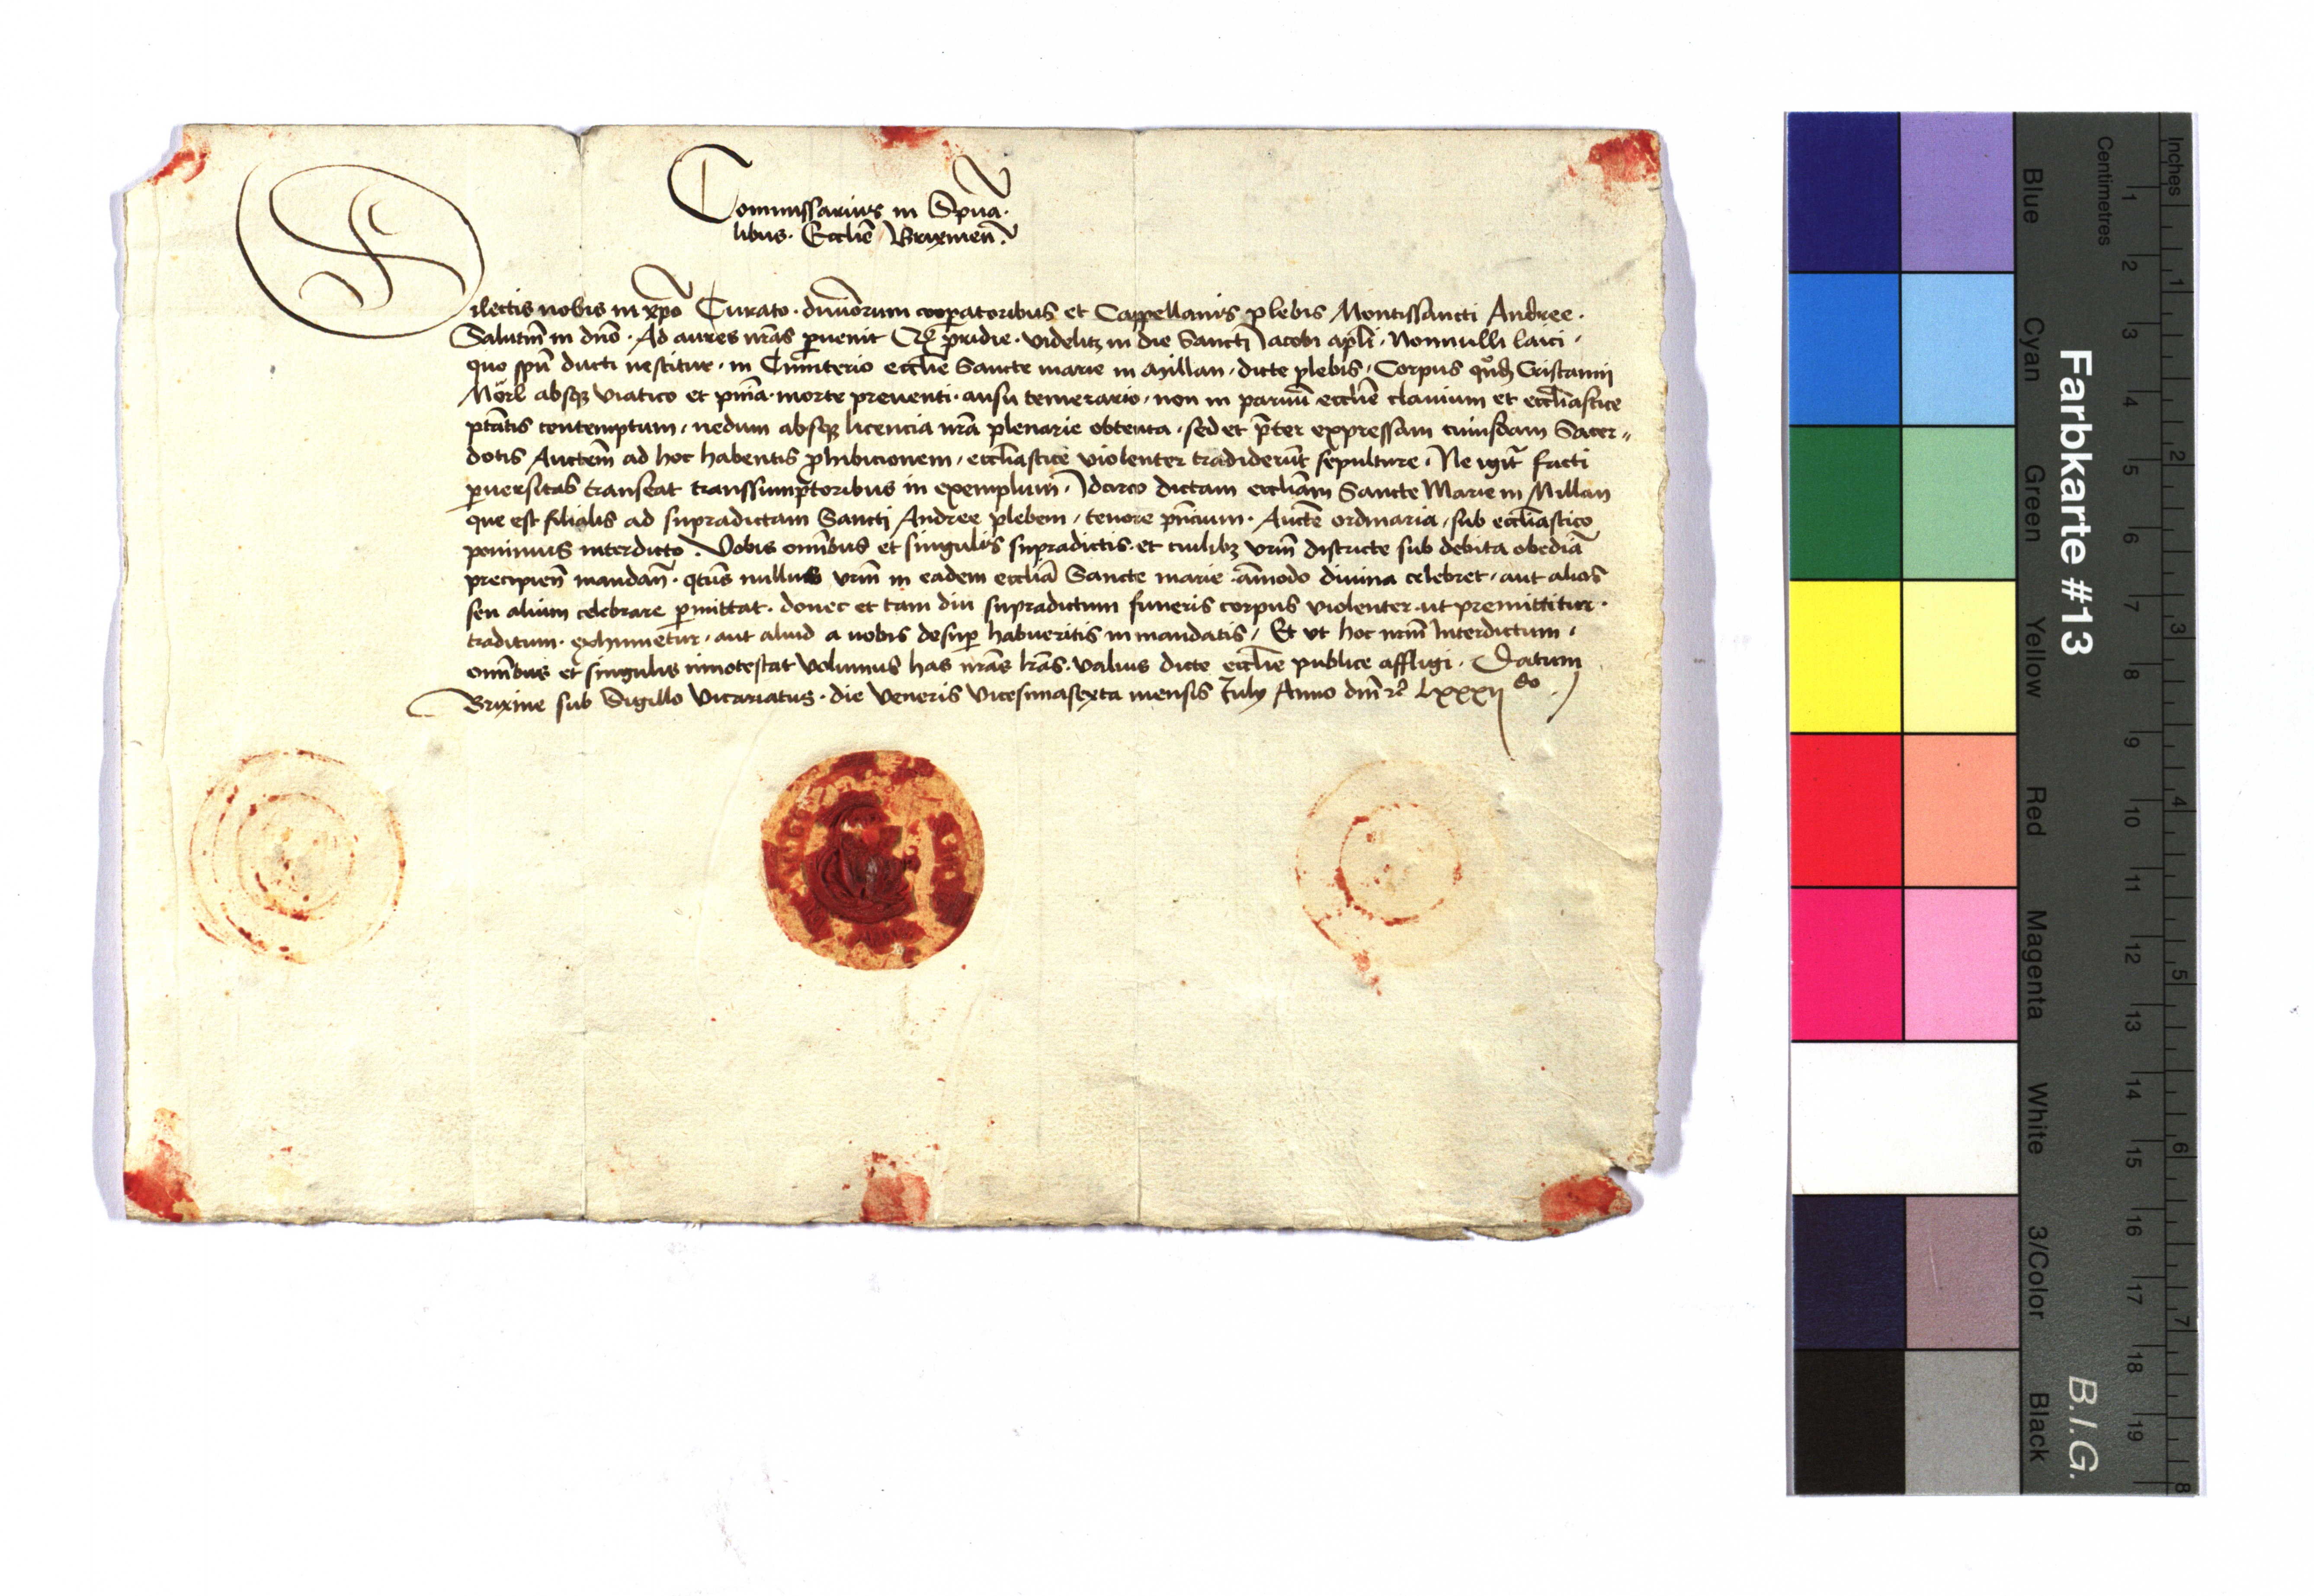 Commissarius in Spũa.
libus. Eccliẽ Brixineñ.
Dilectis nobis in xp̃o Curato. diuiñorum coop̃atoribus et Cappellanis plebis Montissancti Andree.
Salutem̃ in dño. Ad aures nrãs p̃uenit pridie. videlitz in die Sancti Iacobi apl̃i. Nonnulli laici.
quo spũ ducti nescitur. in Cimiterio ecclie Sancte marie in Millan. dicte plebis. Corpus Cristanni
Mörl absq̃ viatico et pniã. morte preuenti. ausu temerario. non in paruũ eccliẽ clauium et eccliãstice
ptãtis contemptum. nedum absq̃ licencia nrã plenarie obtenta. sed et p̃ter expressam cuiusdam Sacer„
dotis Auctem̃ ad hoc habentis p̃hibicionem. eccliãstice violenter tradiderũt sepulture. Ne igit̃ facti
p̃uersitas transeat transsumptoribus in exemplum. Idcirco dictam eccliãm Sancte Marie in Millan
que est filialis ad supradictam Sancti Andree plebem. tenore pñcium. Auctẽ ordinaria. sub eccliãstico
ponimus interdicto. Vobis omñibus et singulis supradictis. et cuilibz vrm̃ districte sub debita obediã
precipieñ mandañ. qtũs nullus vrm̃ in eadem ecclĩa Sancte marie am̃odo diuina celebret. aut alias
seu alium celebrare p̃mittat. donec et tam diu supradictum funeris corpus violenter. ut premittitur.
traditum. exhumetur. aut aliud a nobis desup̃ habueritis in mandatis. Et vt hoc nrm̃ Interdictum.
omñibus et singulis innotescat volumus has nrãs lrãs. valuis dicte ecclie publice affligi. Datum
Brixine sub Sigillo Vicariatus. die Veneris Vicesimasexta mensis July Anno dm̃ rc̃ Lxxxij do.
Farbkarte #13
B.I.G.
Blue
Cyan
Green
Yellow
Red
Magenta
White
3/Color
Black
Centimetres
1 2 3 4 5 6 7 8 9 10 11 12 13 14 15 16 17 18 19
Inches
1 2 3 4 5 6 7 8